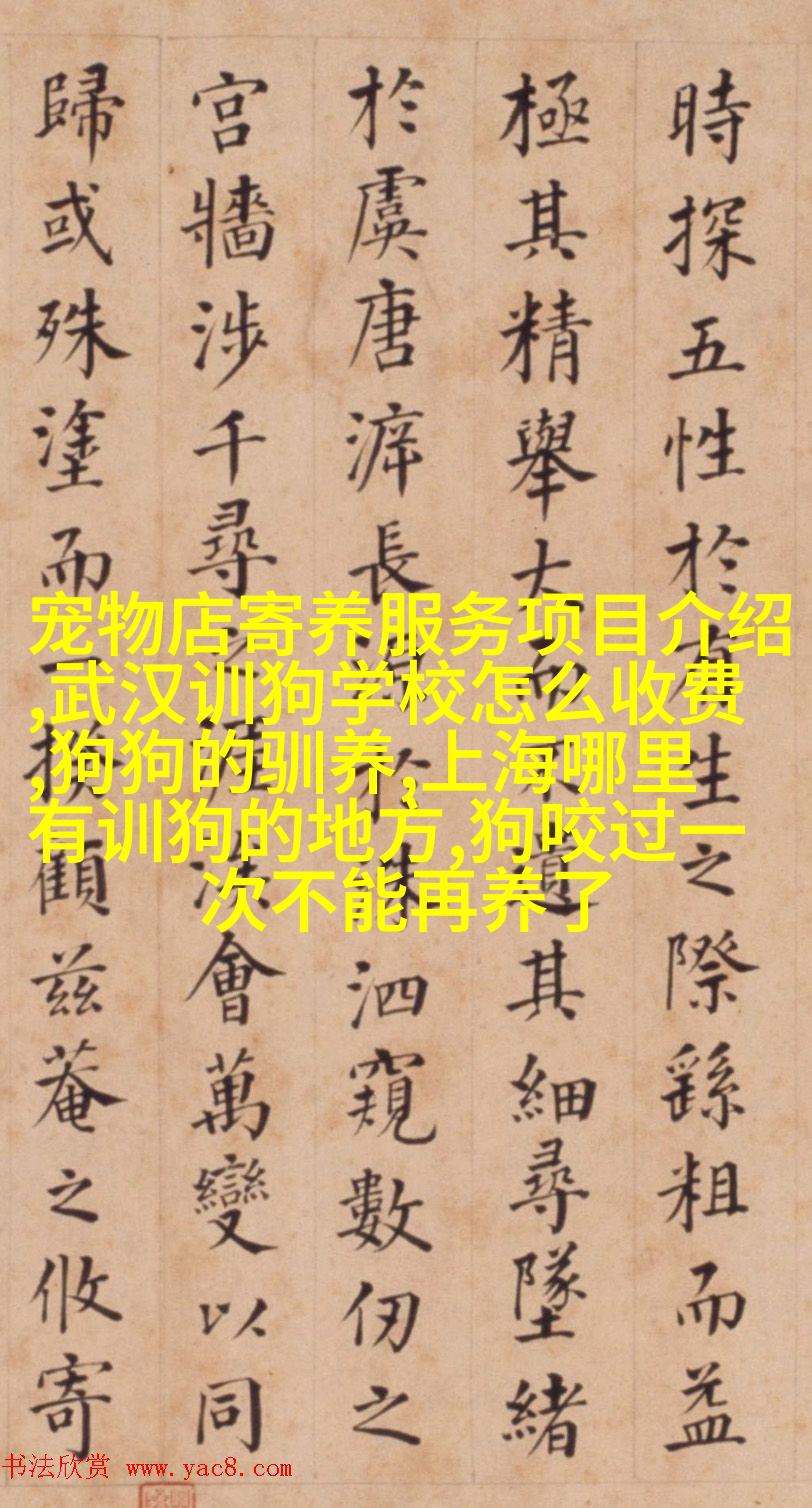 時探五性於有生之際繇粗而益
極其精舉大而不遺其細尋墜緒
於虞唐長於洙泗窺數仞之
宮牆涉千尋會萬變以同
歸或殊塗而一揆顧茲菴之攸寄
宠物店寄养服务项目介绍
,武汉训狗学校怎么收费
,狗狗的驯养,上海哪里
有训狗的地方,狗咬过一
次不能再养了
书法欣赏 www.yac8.com